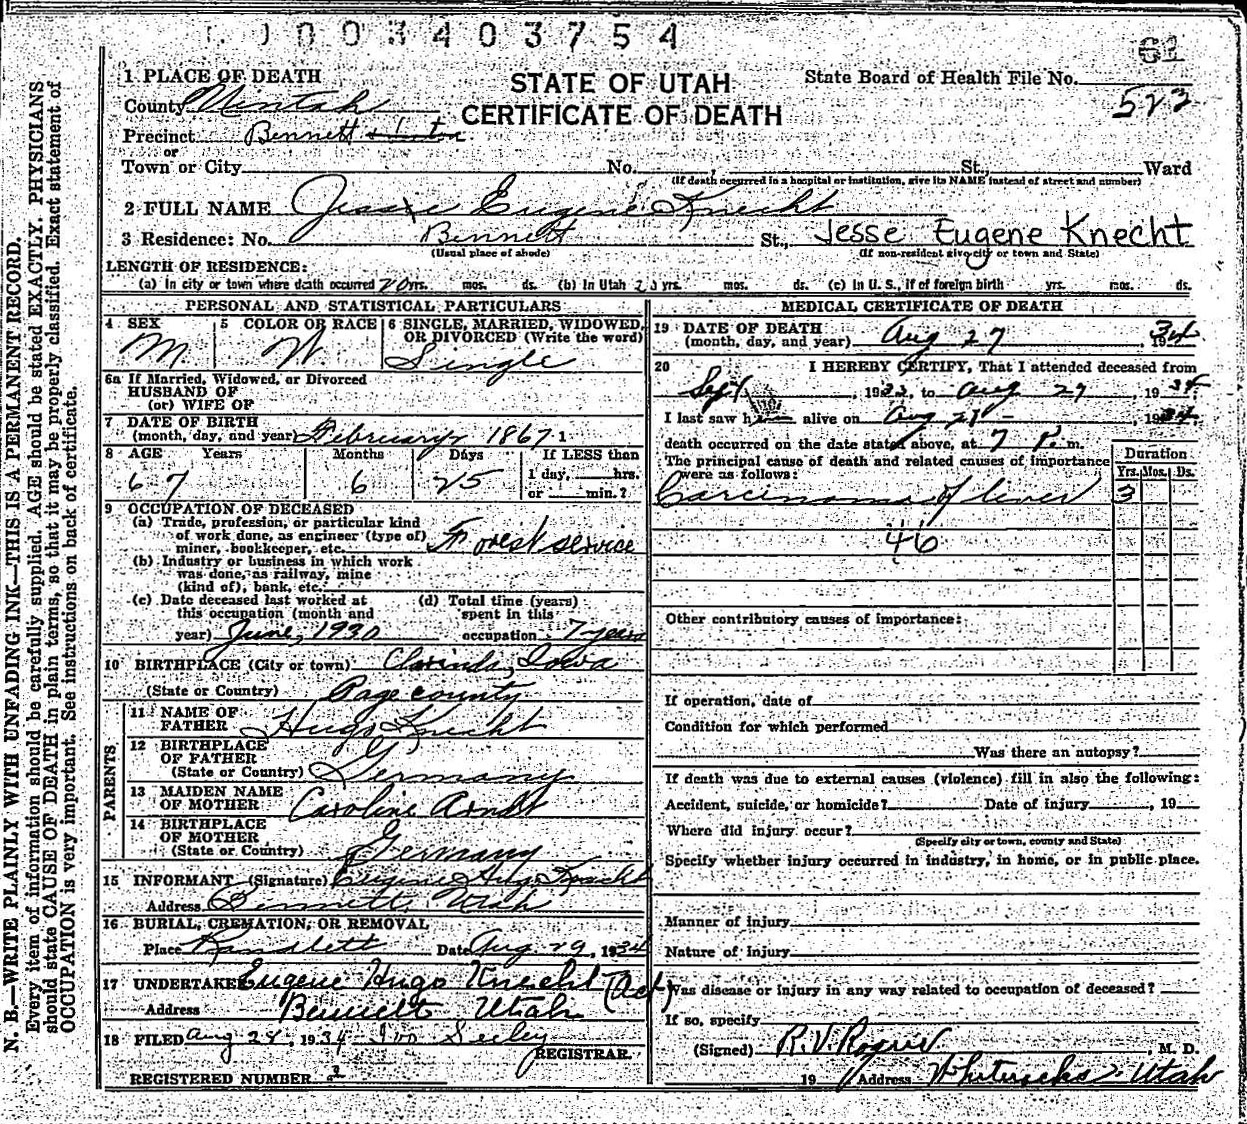 0003403754
61
1 PLACE OF DEATH
STATE OF UTAH
State Board of Health File No.
County Uintah
CERTIFICATE OF DEATH
523
Precinct Bennett
or
Town or City No. St., Ward
(If death occurred in a hospital or institution, give its NAME instead of street and number)
2 FULL NAME Jessie Eugene Knecht
3 Residence: No. Bennett St., Jesse Eugene Knecht
(Usual place of abode) (If non-resident give city or town and State)
LENGTH OF RESIDENCE:
(a) In city or town where death occurred 20 yrs. mos. ds. (b) In Utah yrs. mos. ds. (c) In U. S., if of foreign birth yrs. mos. ds.
PERSONAL AND STATISTICAL PARTICULARS
4 SEX 5 COLOR OR RACE 6 SINGLE, MARRIED, WIDOWED, OR DIVORCED (Write the word)
M W Single
6a If Married, Widowed, or Divorced
HUSBAND OF
(or) WIFE OF
7 DATE OF BIRTH
(month, day, and year) February 1867
8 AGE Years Months Days If LESS than
67 6 25 1 day, hrs.
or min.?
9 OCCUPATION OF DECEASED
(a) Trade, profession, or particular kind
of work done, as engineer (type of)
miner, bookkeeper, etc. Forest service
(b) Industry or business in which work
was done, as railway, mine
(kind of), bank, etc.
(c) Date deceased last worked at (d) Total time (years)
this occupation (month and spent in this
year) June, 1930 occupation 7 years
10 BIRTHPLACE (City or town) Clarinda, Iowa
(State or Country) Page county
PARENTS
11 NAME OF
FATHER Hugo Knecht
12 BIRTHPLACE
OF FATHER
(State or Country) Germany
13 MAIDEN NAME
OF MOTHER Caroline Arndt
14 BIRTHPLACE
OF MOTHER
(State or Country) Germany
15 INFORMANT (Signature) Eugene Hugo Knecht
Address Bennett Utah
16 BURIAL, CREMATION, OR REMOVAL
Place Randlett Date Aug 29, 1934
17 UNDERTAKER Eugene Hugo Knecht (Act)
Address Bennett Utah
18 FILED Aug 28, 1934 Ivo Seeley
REGISTRAR.
REGISTERED NUMBER 2
MEDICAL CERTIFICATE OF DEATH
19 DATE OF DEATH
(month, day, and year) Aug 27, 1934
20 I HEREBY CERTIFY, That I attended deceased from
Sept, 1933, to Aug 27, 1934
I last saw h alive on Aug 27, 1934
death occurred on the date stated above, at 7 P. m.
The principal cause of death and related causes of importance
were as follows:
Duration
Yrs. Mos. Ds.
Carcinoma of liver 3
46
Other contributory causes of importance:
If operation, date of
Condition for which performed
Was there an autopsy?
If death was due to external causes (violence) fill in also the following:
Accident, suicide, or homicide? Date of injury , 19
Where did injury occur?
(Specify city or town, county and State)
Specify whether injury occurred in industry, in home, or in public place.
Manner of injury
Nature of injury
Was disease or injury in any way related to occupation of deceased?
If so, specify
(Signed) R. V. , M. D.
19 Address Whiterocks Utah
N. B.—WRITE PLAINLY WITH UNFADING INK—THIS IS A PERMANENT RECORD.
Every item of information should be carefully supplied. AGE should be stated EXACTLY. PHYSICIANS
should state CAUSE OF DEATH in plain terms, so that it may be properly classified. Exact statement of
OCCUPATION is very important. See instructions on back of certificate.